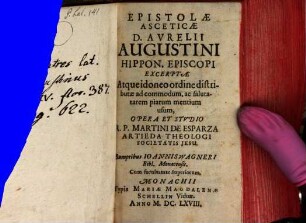 P. lat. 141
Patres lat.
387.
g. 622.
EPISTOLÆ
ASCETICÆ
D. AVRELII
AUGUSTINI
HIPPON. EPISCOPI
EXCERPTÆ
Atque idoneo ordine distri-
butæ ad commodum, ac saluta-
tarem piarum mentium
usum,
OPERA ET STVDIO
R. P. MARTINI DE ESPARZA
ARTIEDA THEOLOGI
SOCIETATIS JESU.
Sumptibus IOANNIS WAGNERI
Bibl. Monacensis.
Cum facultate Superiorum.
MONACHII
Typis MARIÆ MAGDALENÆ
SCHELLIN Viduæ.
ANNO M. DC. LXVIII.